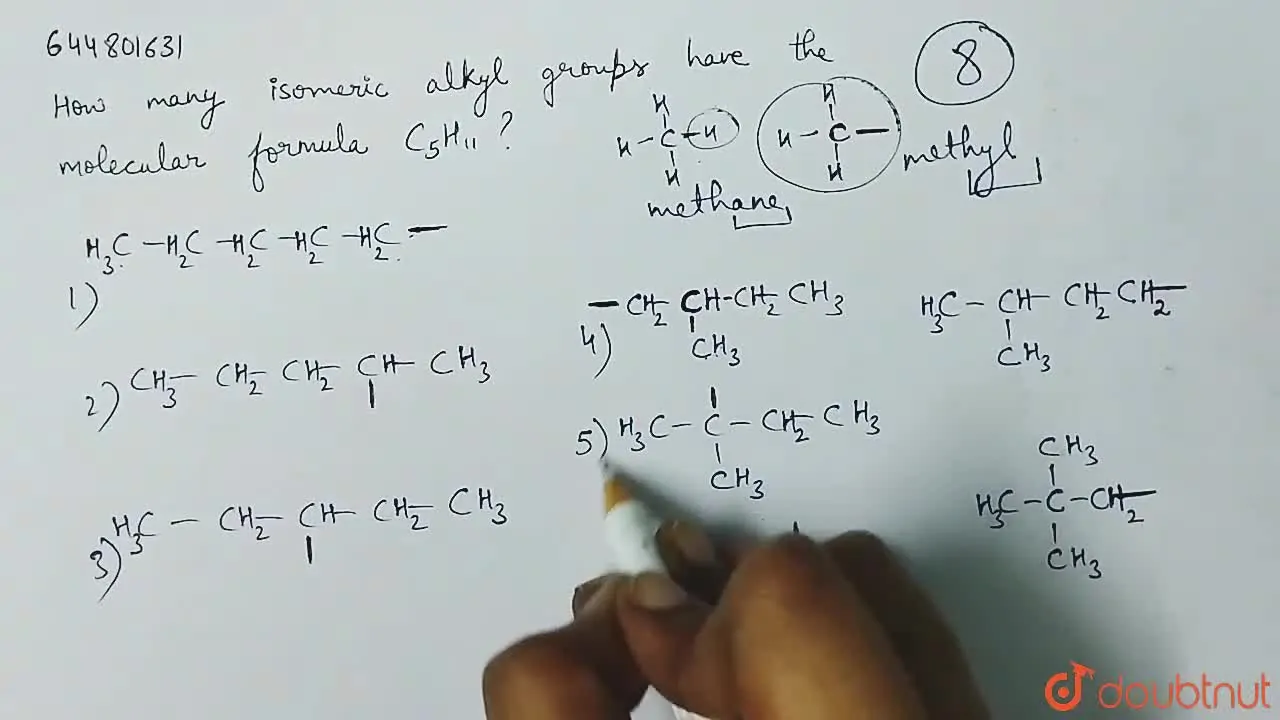 644801631
How many isomeric alkyl groups have the
molecular formula C₅H₁₁ ?
8
H
H - C - H
H
methane
H
H - C —
H
methyl
H₃C - H₂C - H₂C - H₂C - H₂C —
1)
2) CH₃ - CH₂ CH₂ CH - CH₃
3) H₃C - CH₂ - CH - CH₂ - CH₃
4) — CH₂ CH - CH₂ CH₃
CH₃
5) H₃C - C - CH₂ - CH₃
CH₃
H₃C - CH - CH₂ CH₂ —
CH₃
CH₃
H₃C - C - CH₂ —
CH₃
doubtnut